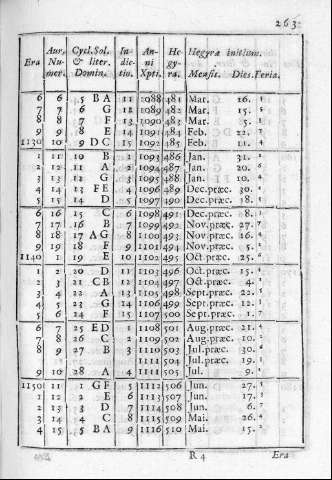 263
Era Aur. Numer. Cycl. Sol. & liter. Domin. Indictio. Anni Xpti. Hegyra. Hegyræ initium. Mensis. Dies. Feria.
6 6 5 B A 11 1088 481 Mar. 26.
7 7 6 G 12 1089 482 Mar. 15.
8 8 7 F 13 1090 483 Mar. 5.
9 9 8 E 14 1091 484 Feb. 22.
1130 10 9 D C 15 1092 485 Feb. 11.
1 11 10 B 1 1093 486 Jan. 31.
2 12 11 A 2 1094 487 Jan. 21.
3 13 12 G 3 1095 488 Jan. 10.
4 14 13 F E 4 1096 489 Dec.præc. 30.
5 15 14 D 5 1097 490 Dec.præc. 18.
6 16 15 C 6 1098 491 Dec.præc. 8.
7 17 16 B 7 1099 492 Nov.præc. 27.
8 18 17 A G 8 1100 493 Nov.præc. 16.
9 19 18 F 9 1101 494 Nov.præc. 5.
1140 1 19 E 10 1102 495 Oct.præc. 25.
1 2 20 D 11 1103 496 Oct.præc. 15.
2 3 21 C B 12 1104 497 Oct.præc. 4.
3 4 22 A 13 1105 498 Sept.præc. 22.
4 5 23 G 14 1106 499 Sept.præc. 12.
5 6 24 F 15 1107 500 Sept.præc. 1.
6 7 25 E D 1 1108 501 Aug.præc. 21.
7 8 26 C 2 1109 502 Aug.præc. 10.
8 9 27 B 3 1110 503 Jul.præc. 30.
1111 504 Jul.præc. 19.
9 10 28 A 4 1111 505 Jul. 9.
1150 11 1 G F 5 1112 506 Jun. 27.
1 12 2 E 6 1113 507 Jun. 17.
2 13 3 D 7 1114 508 Jun. 6.
3 14 4 C 8 1115 509 Mai. 26.
4 15 5 B A 9 1116 510 Mai. 15.
R 4 Era